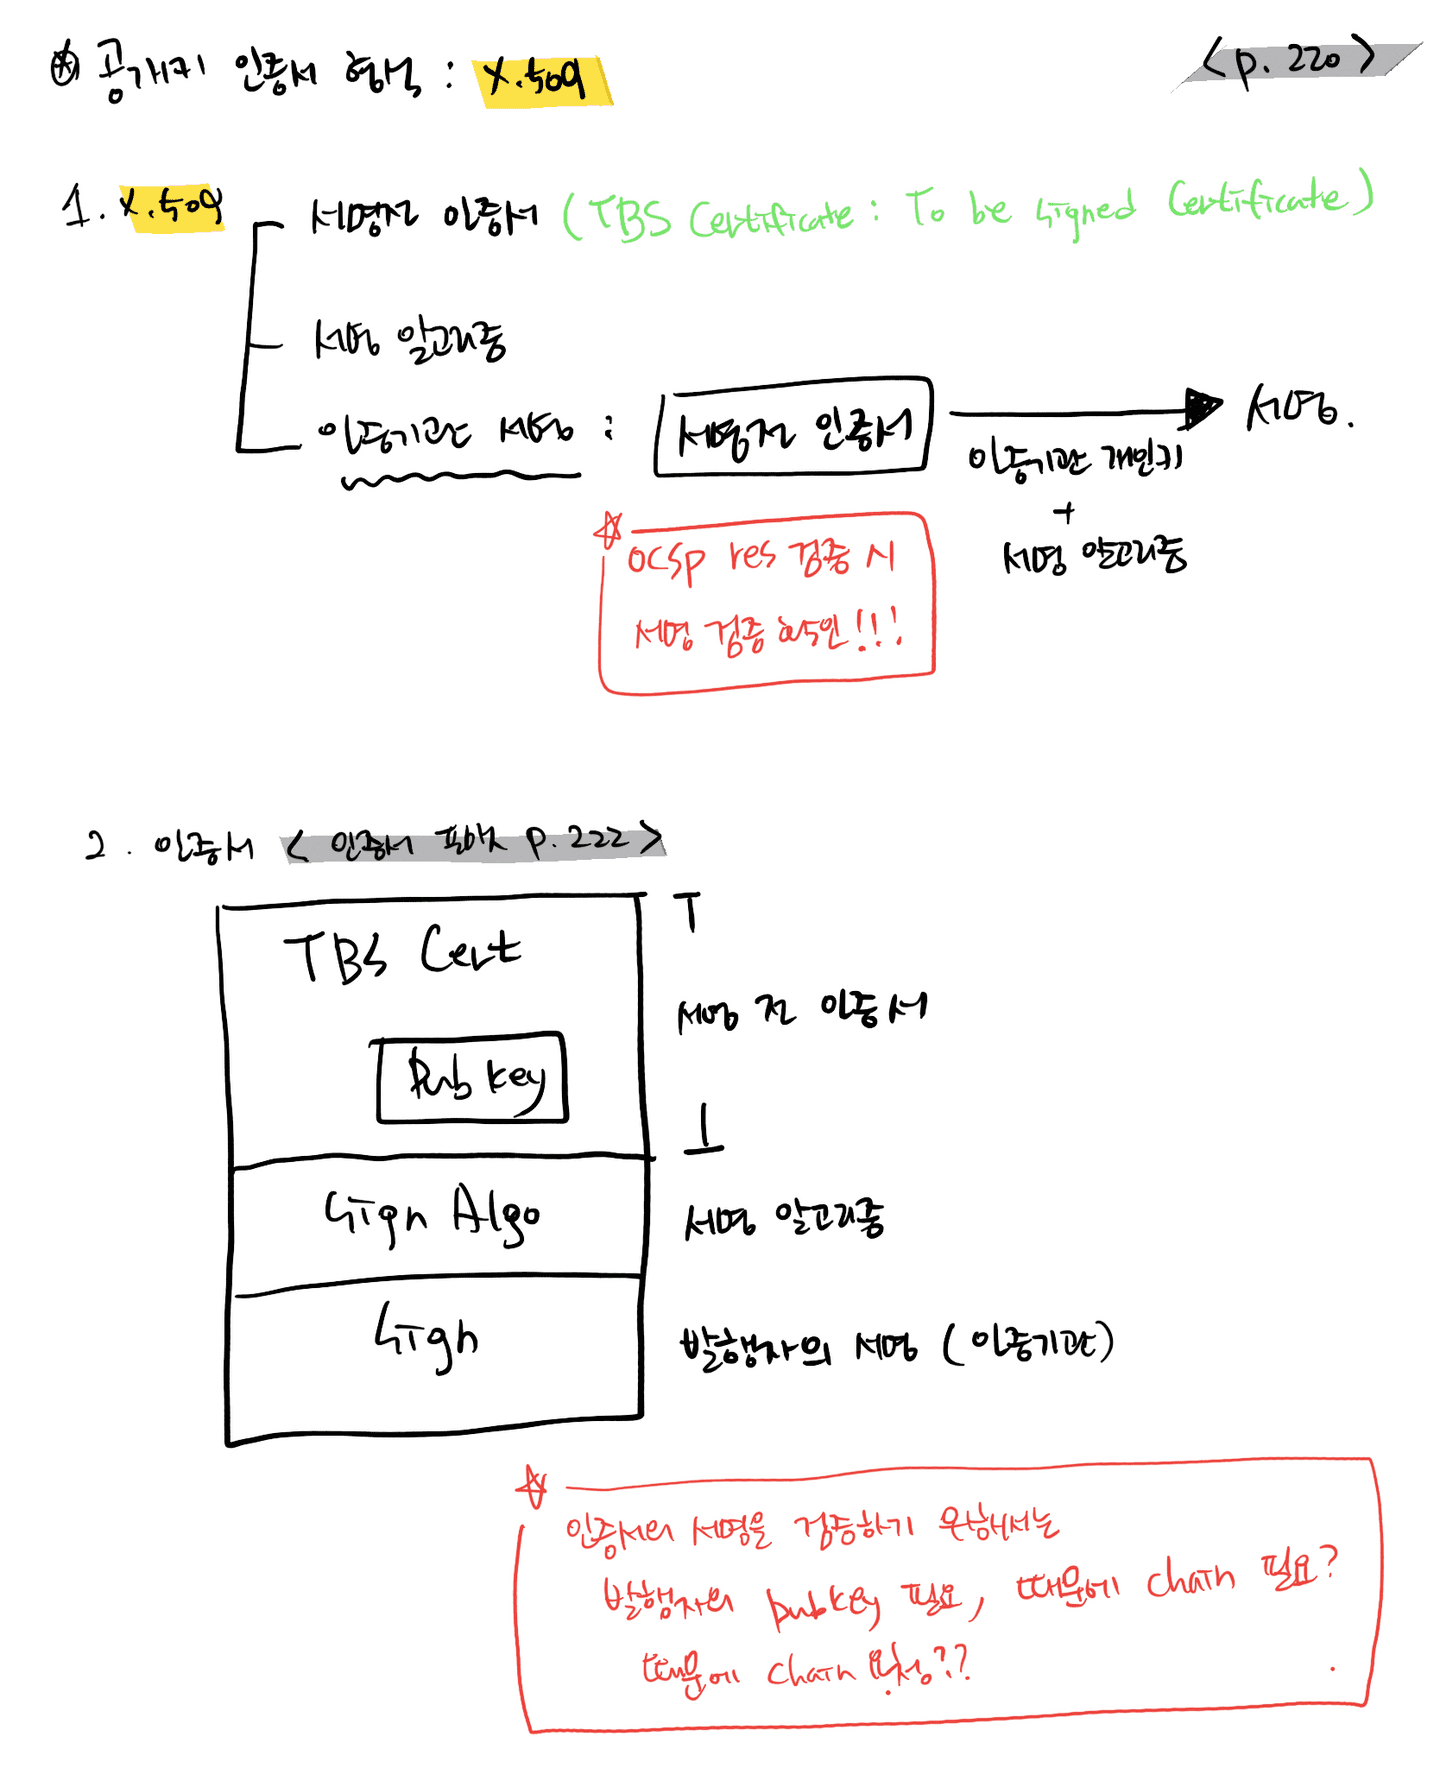 공개키 인증서 형식 : X.509
<p. 220>
1. X.509
서명전 인증서 (TBS Certificate : To be signed Certificate)
서명 알고리즘
인증기관 서명 : 서명전 인증서 서명.
인증기관 개인키
+
서명 알고리즘
OCSP res 검증 시
서명 검증 확인!!!
2. 인증서 <인증서 포맷 p.222>
TBS Cert
서명 전 인증서
Pub key
Sign Algo 서명 알고리즘
Sign 발행자의 서명 (인증기관)
인증서의 서명을 검증하기 위해서는
발행자의 pubkey 필요, 때문에 chain 필요?
때문에 chain 요청??